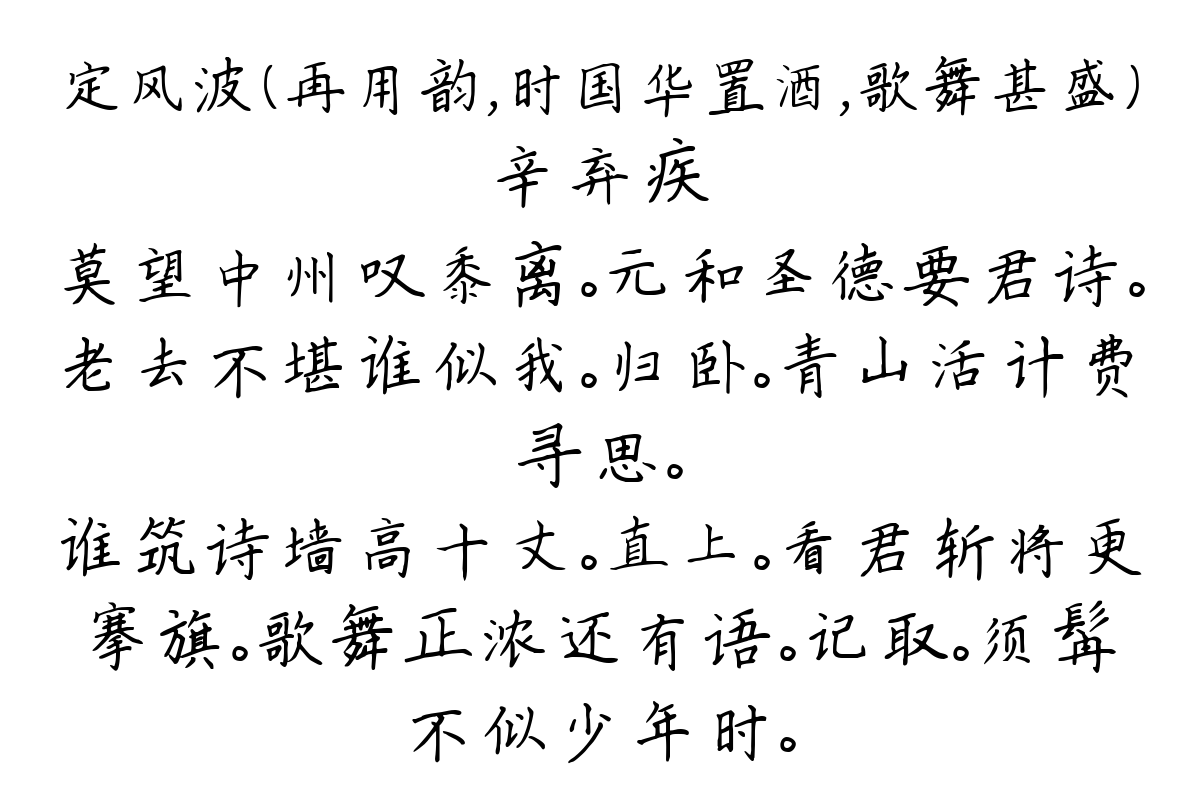 定风波(再用韵,时国华置酒,歌舞甚盛)
辛弃疾
莫望中州叹黍离。元和圣德要君诗。
老去不堪谁似我。归卧。青山活计费
寻思。
谁筑诗墙高十丈。直上。看君斩将更
搴旗。歌舞正浓还有语。记取。须髯
不似少年时。